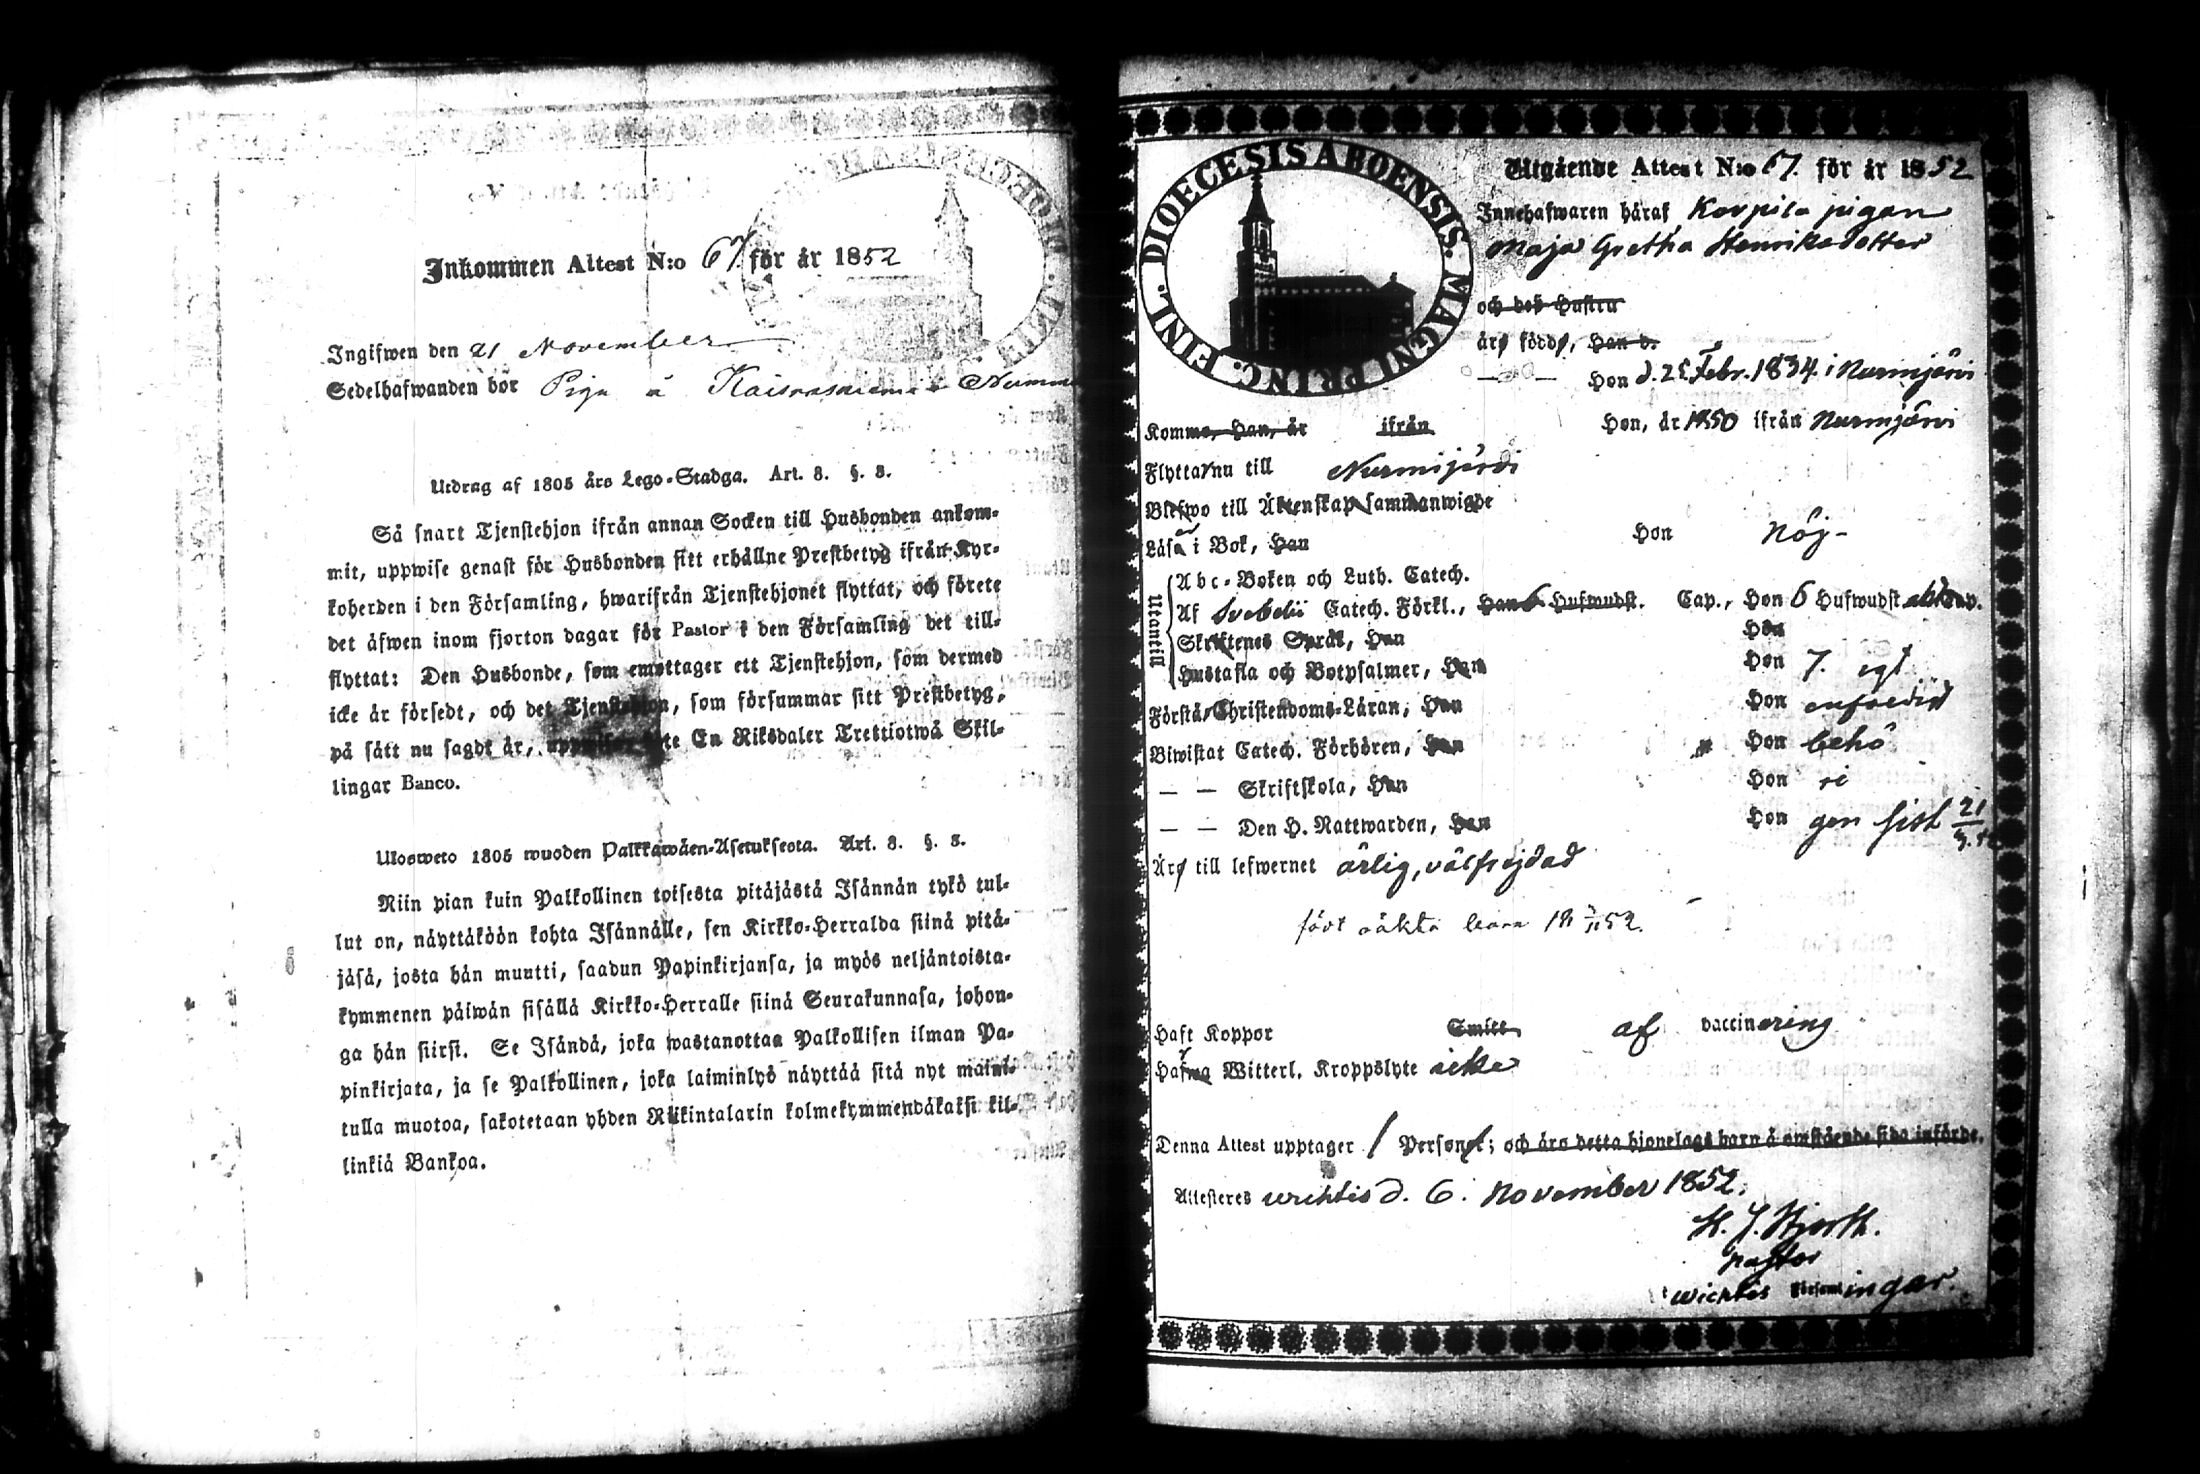 Inkommen Attest N:o 67. för år 1852
Ingifwen den 21 November
Sedelhafwanden bor Piga å
Utdrag af 1805 års Lego-Stadga. Art. 8. §. 8.
Så snart Tjenstehjon ifrån annan Socken till Husbonden ankom-
mit, uppwise genast för Husbonden sitt erhållne Prestbetyg ifrån Kyr-
koherden i den Församling, hwarifrån Tjenstehjonet flyttat, och förete
det äfwen inom fjorton dagar för Pastor i den Församling det till-
flyttat: Den Husbonde, som emottager ett Tjenstehjon, som dermed
icke är försedt, och det Tjenstehjon, som försummar sitt Prestbetyg,
på sätt nu sagdt är, En Riksdaler Trettiotwå Skil-
lingar Banco.
Ulosweto 1805 wuoden Palkkawäen-Asetuksesta. Art. 8. §. 8.
Niin pian kuin Palkollinen toisesta pitäjästä Isännän tykö tul-
lut on, näyttäköön kohta Isännälle, sen Kirkko-Herralda siinä pitä-
jäsä, josta hän muutti, saadun Papinkirjansa, ja myös neljäntoista-
kymmenen päiwän sisällä Kirkko-Herralle siinä Seurakunnasa, johon-
ga hän siirsi. Se Isändä, joka wastanottaa Palkollisen ilman Pa-
pinkirjata, ja se Palkollinen, joka laiminlyö näyttää sitä nyt maini-
tulla muotoa, sakotetaan yhden Riikintalarin kolmekymmendäkaksi kil-
linkiä Bankoa.
DIOECESIS ABOENSIS. MAGNI PRINC. FINL.
Utgående Attest N:o 67. för år 1852
Innehafwaren häraf Korpila pigan
Maja Gretha Henriksdotter
och des Hustru
äro födde, Han d.
— — Hon d. Febr. 1834 i Nurmijärvi
Komme, Han, år ifrån Hon, år 1850 ifrån Nurmijärvi
Flytta nu till Nurmijärvi
Blefwo till Äktenskap sammanwigde
Läsa i Bok, Han Hon nöj-
Utantill
Abc-Boken och Luth. Catech.
Af Svebelii Catech. Förkl., Han 6 Hufwudst. Cap., Hon 6 Hufwudst. Cap.
Skriftenes Språk, Han Hon
Hustafla och Botpsalmer, Han Hon 7.
Förstå Christendoms-Läran, Han Hon enfaldigt
Biwistat Catech. Förhören, Han Hon behö
— — Skriftskola, Han Hon ri
— — Den H. Nattwarden, Han Hon gen sist 21
Äro till lefwernet ärlig, välfrejdad
född oäkta barn 18 52.
Haft Koppor Smitt af vaccinering
Hafwa Witterl. Kroppslyte icke
Denna Attest upptager 1 Person; och äro detta hjonelags barn å omstående sida införde.
Attesteres wichtis d. 6. November 1852.
Pastor
i Wichtis Församlingar.